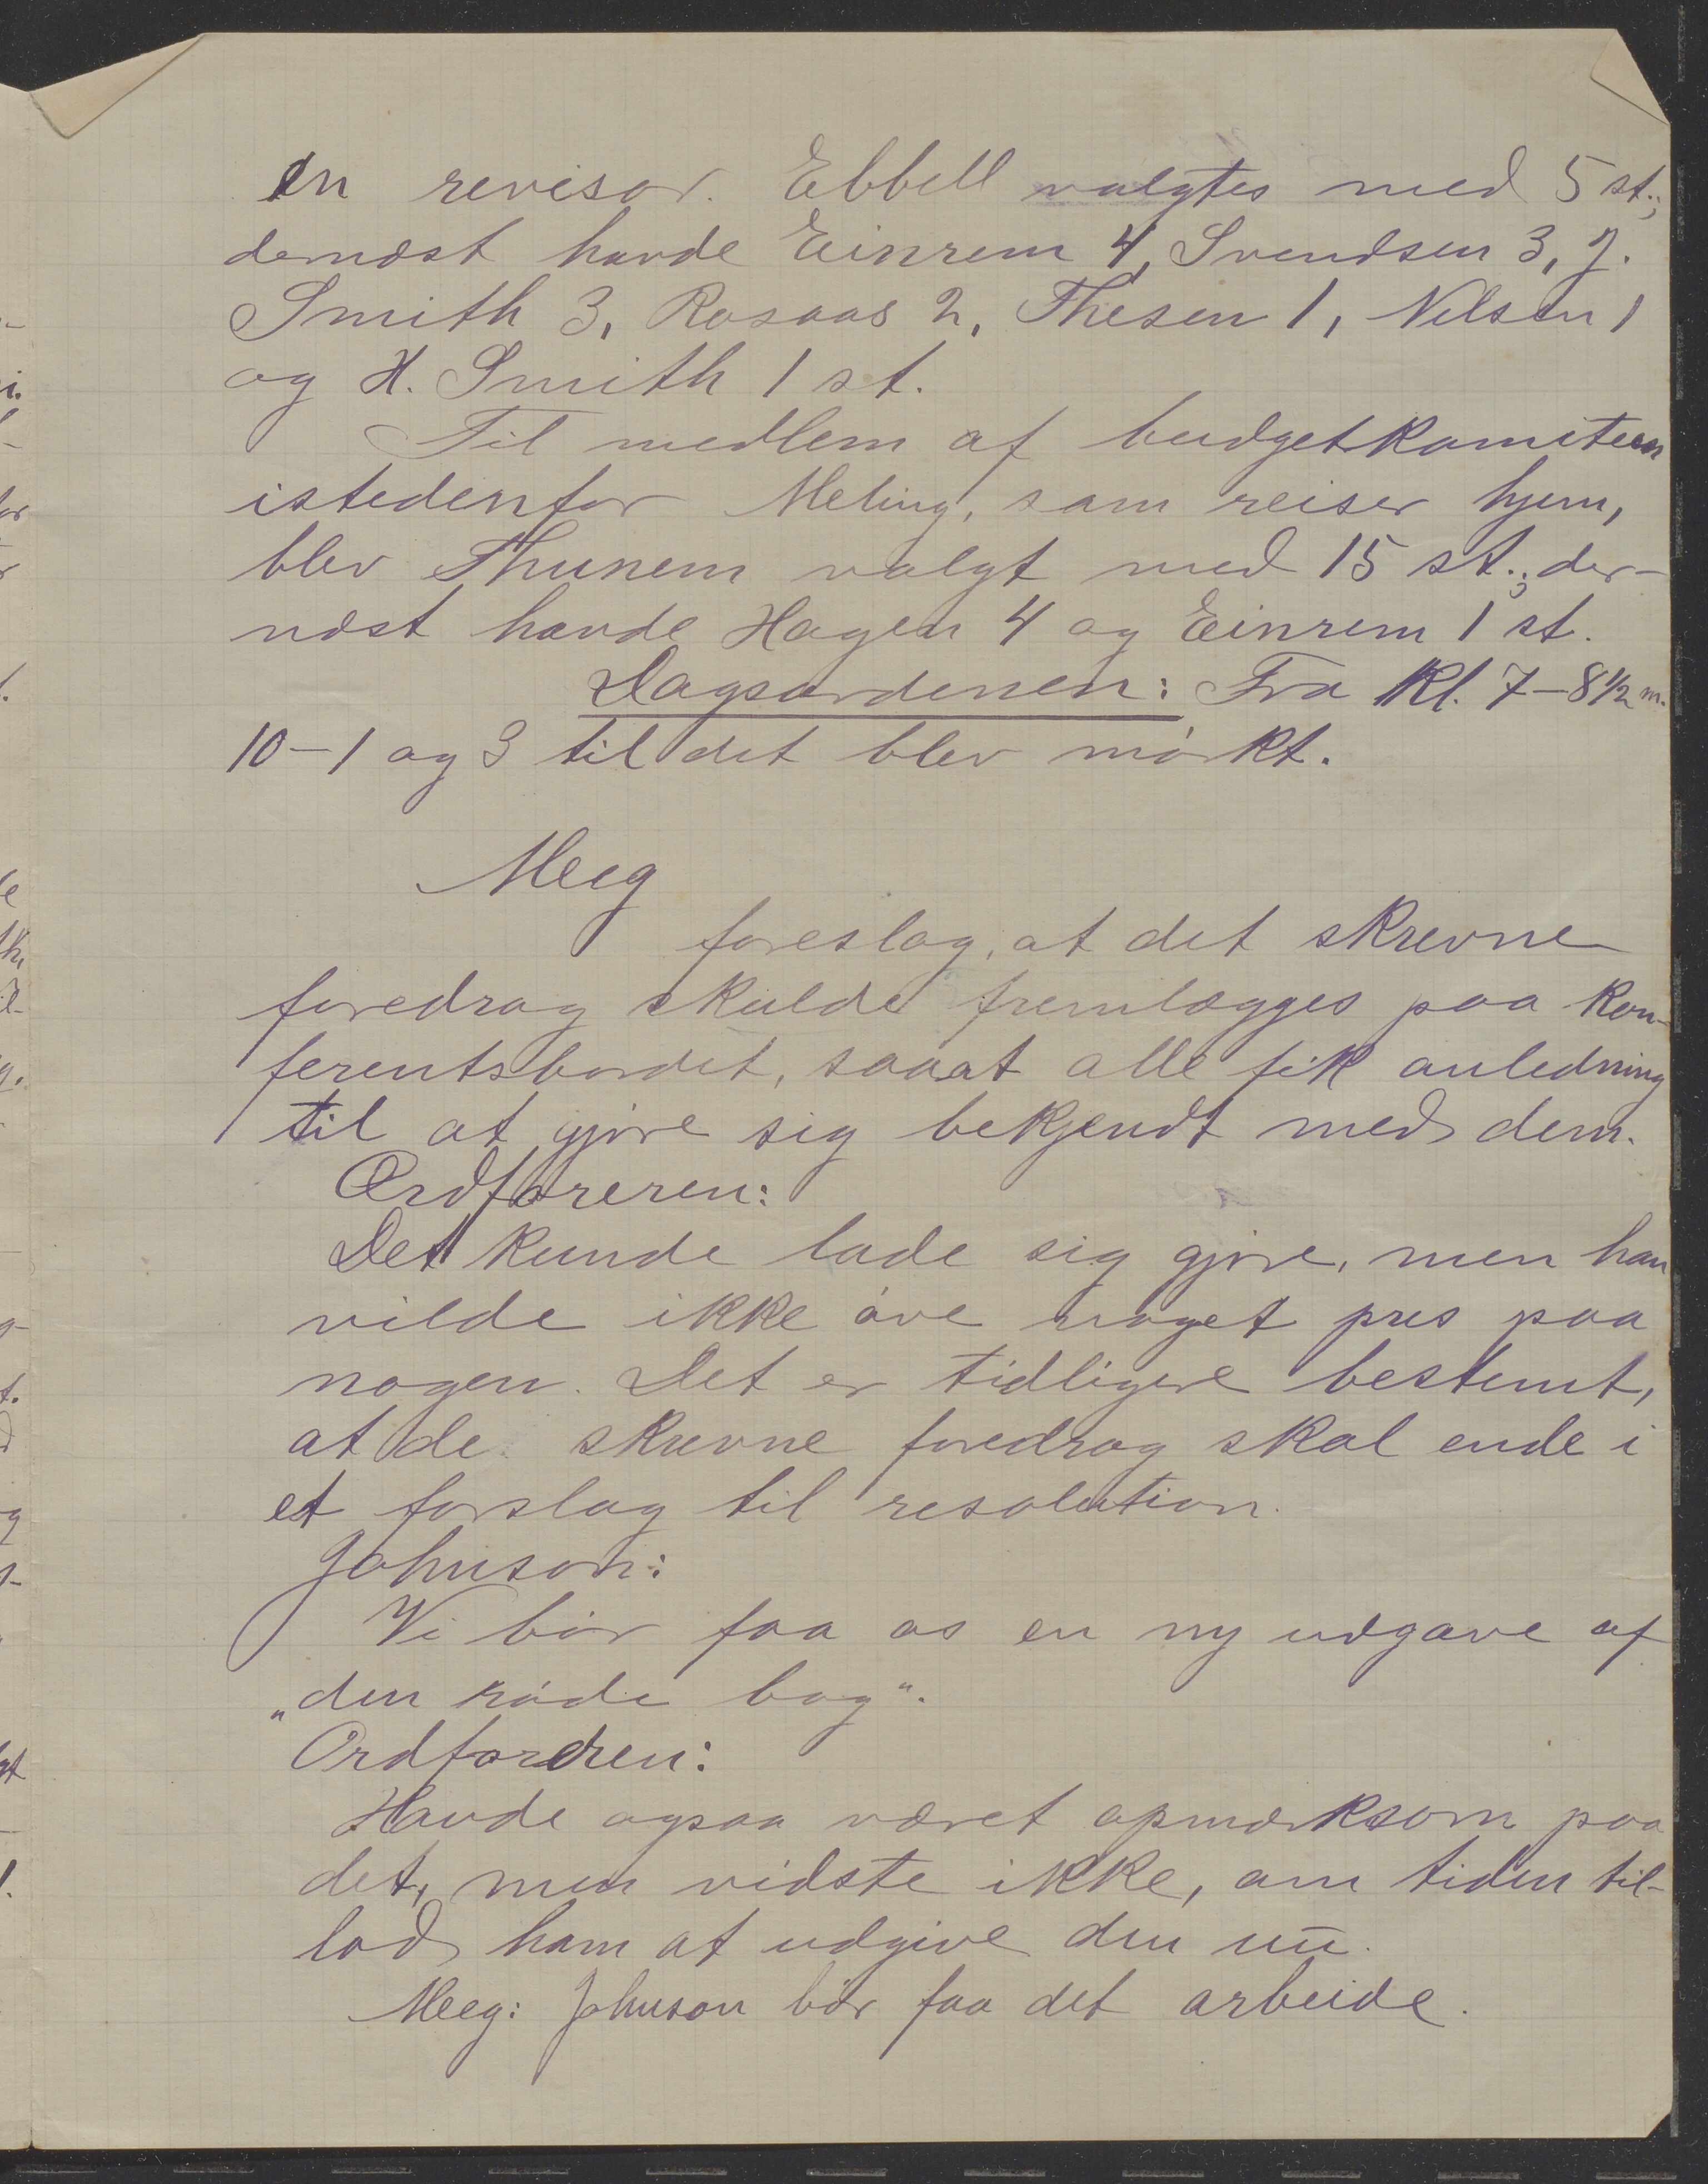 en revisor. Ebbell valgtes med 5 st.;
dernæst havde Einrem 4, Svendsen 3, J.
Smith 3, Rosaas 2, Thesen 1, Nilsen 1
og H. Smith 1 st.
Til medlem af budgetkomiteen
istedenfor Meling, som reiser hjem,
blev Thunem valgt med 15 st.; der-
næst havde Hagen 4 og Einrem 1 st.
Dagsordenen: Fra Kl. 7-8½ m.
10-1 og 3 til det blev mörkt.
Meeg
foreslog, at det skrevne
foredrag skulde fremlægges paa kon-
ferentsbordet, saaat alle fik anledning
til at gjöre sig bekjendt med dem.
Ordföreren:
Det kunde lade sig gjöre, men han
vilde ikke öve noget pres paa
nogen. Det er tidligere bestemt,
at de skrevne foredrag skal ende i
et forslag til resolution.
Johnson:
Vi bör faa os en ny udgave af
„den röde bog“.
Ordföreren:
Havde ogsaa været opmærksom paa
det, men vidste ikke, om tiden til-
lod ham at udgive den nu.
Meeg: Johnson bör faa det arbeide.